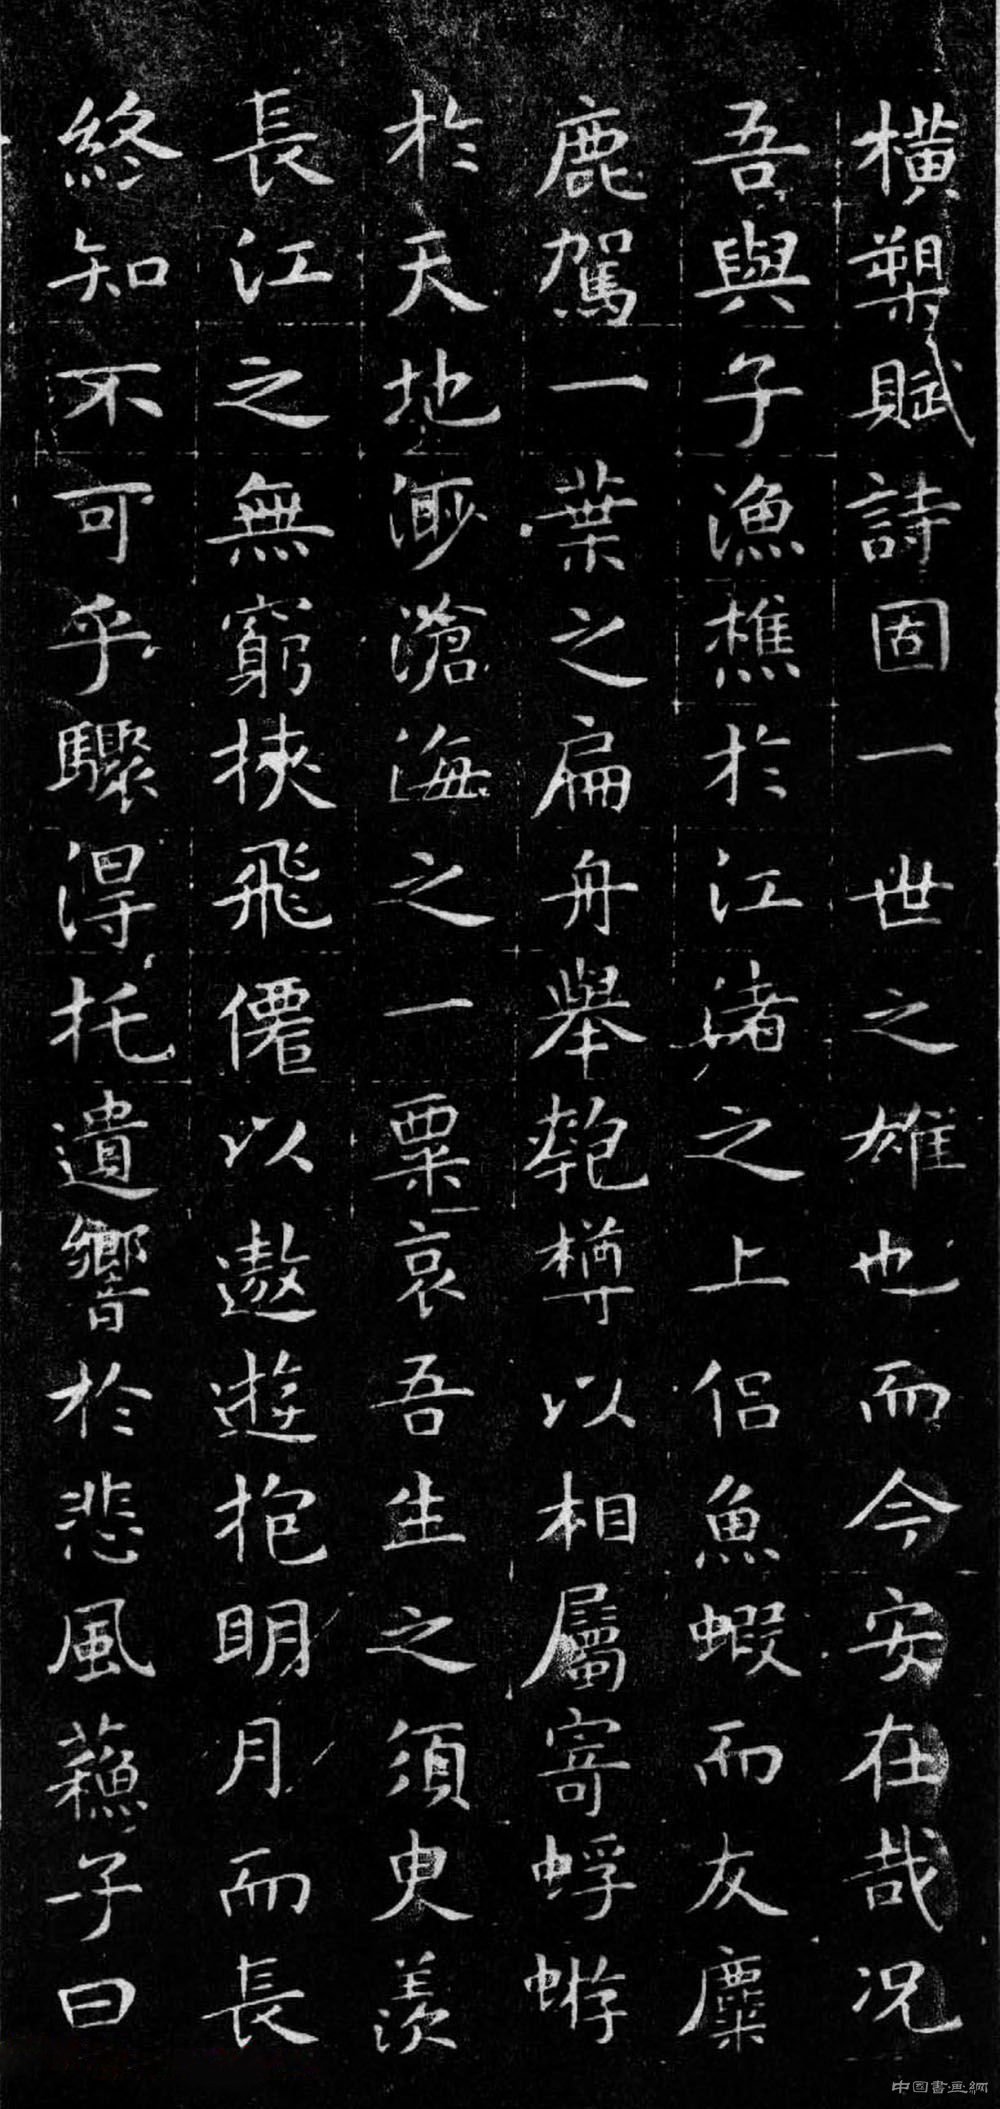 橫槊賦詩固一世之雄也而今安在哉况
吾與子漁樵於江渚之上侣魚蝦而友麋
鹿駕一葉之扁舟舉匏樽以相屬寄蜉蝣
於天地渺滄海之一粟哀吾生之須臾羨
長江之無窮挾飛僊以遨遊抱明月而長
終知不可乎驟得托遺響於悲風蘓子曰
中国書画網